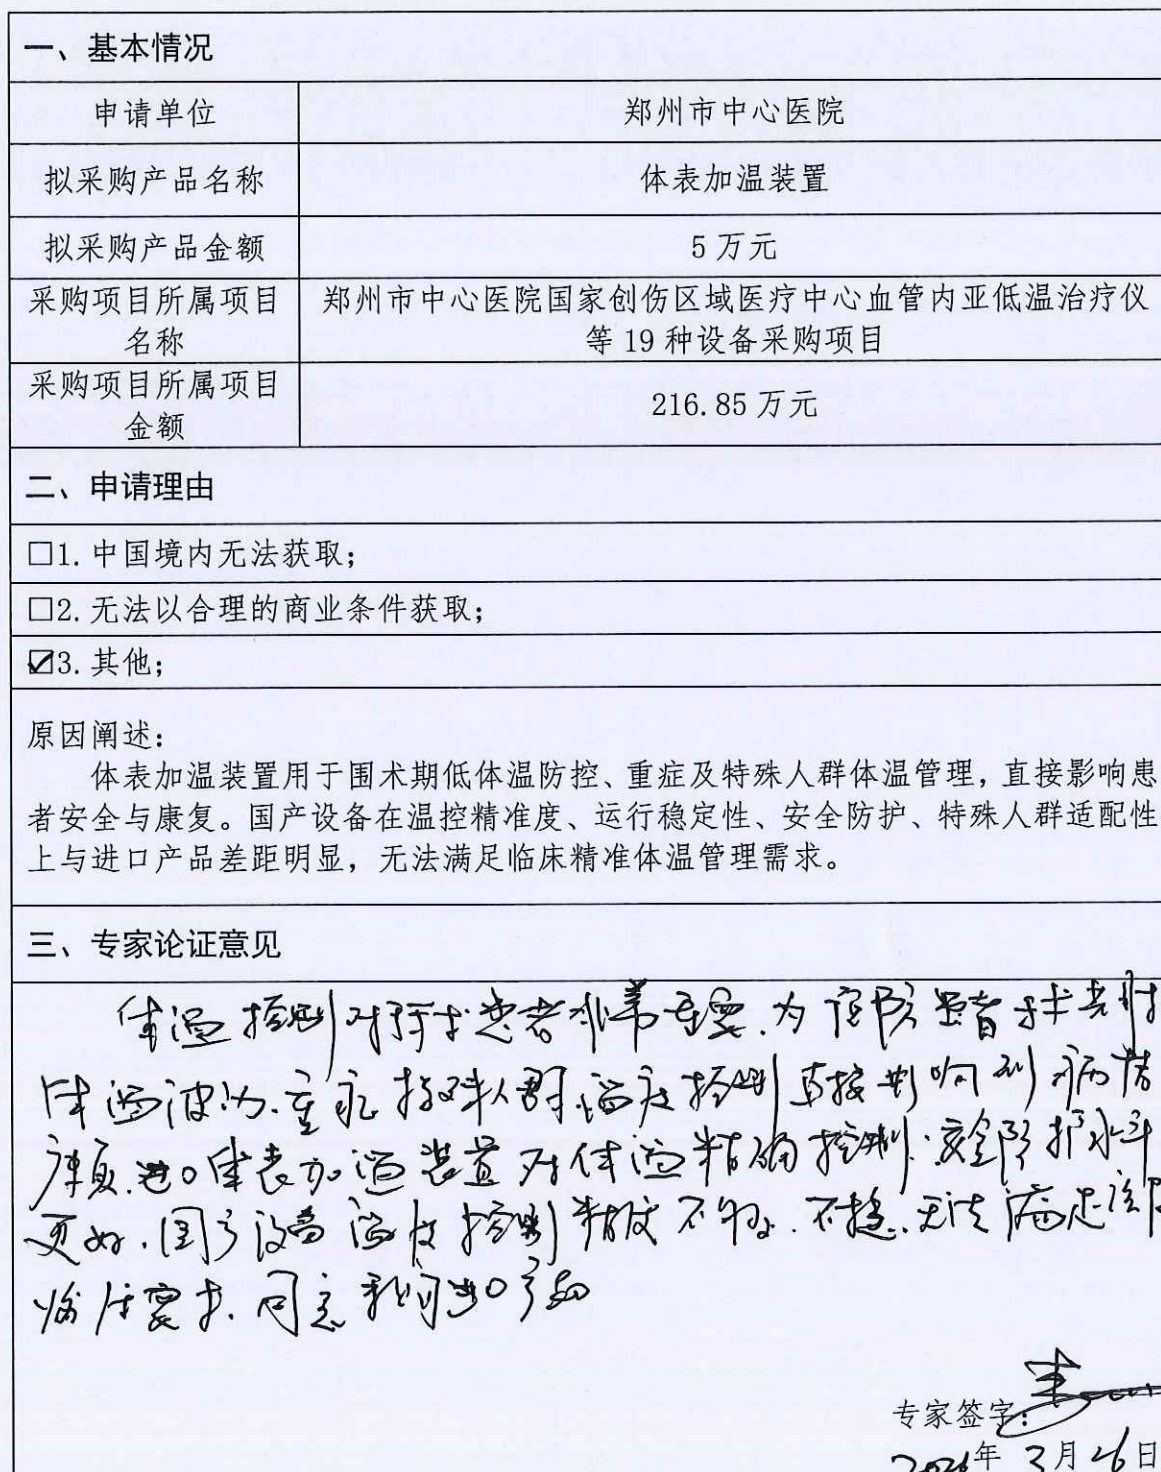 一、基本情况
申请单位 郑州市中心医院
拟采购产品名称 体表加温装置
拟采购产品金额 5万元
采购项目所属项目 郑州市中心医院国家创伤区域医疗中心血管内亚低温治疗仪
名称 等19种设备采购项目
采购项目所属项目
金额 216.85万元
二、申请理由
□1.中国境内无法获取；
□2.无法以合理的商业条件获取；
☑3.其他；
原因阐述：
体表加温装置用于围术期低体温防控、重症及特殊人群体温管理，直接影响患
者安全与康复。国产设备在温控精准度、运行稳定性、安全防护、特殊人群适配性
上与进口产品差距明显，无法满足临床精准体温管理需求。
三、专家论证意见
体温控制对手术患者非常重要.为 患者手术
体温波动.重症 特殊人群温度控制直接影响到病情
康复.进口体表加温装置对体温精确控制.安全防护水平
更好.国产设备温度控制精度不够.不稳.无法满足该院
临床要求.同意采购进口产品
专家签字：
2026年3月26日